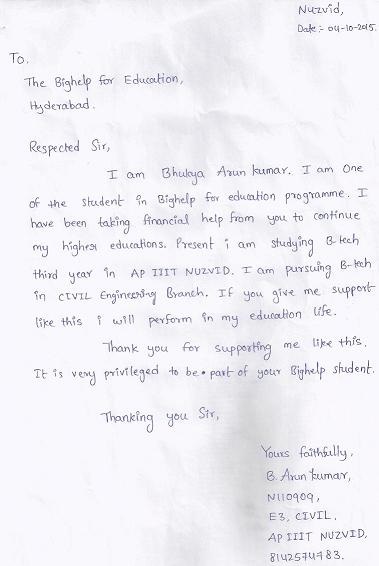 Nuzvid,
Date:- 04-10-2015.
To.
The Bighelp for Education,
Hyderabad.
Respected Sir,
I am Bhukya Arun kumar. I am One
of the student in Bighelp for education programme. I
have been taking financial help from you to continue
my higher educations. Present i am studying B-tech
third year in AP IIIT NUZVID. I am pursuing B-tech
in CIVIL Engineering Branch. If you give me support
like this i will perform in my education life.
Thank you for supporting me like this.
It is very privileged to be part of your Bighelp student.
Thanking you Sir,
Yours faithfully,
B. Arun kumar,
N110909,
E3, CIVIL,
AP IIIT NUZVID,
8142574783.